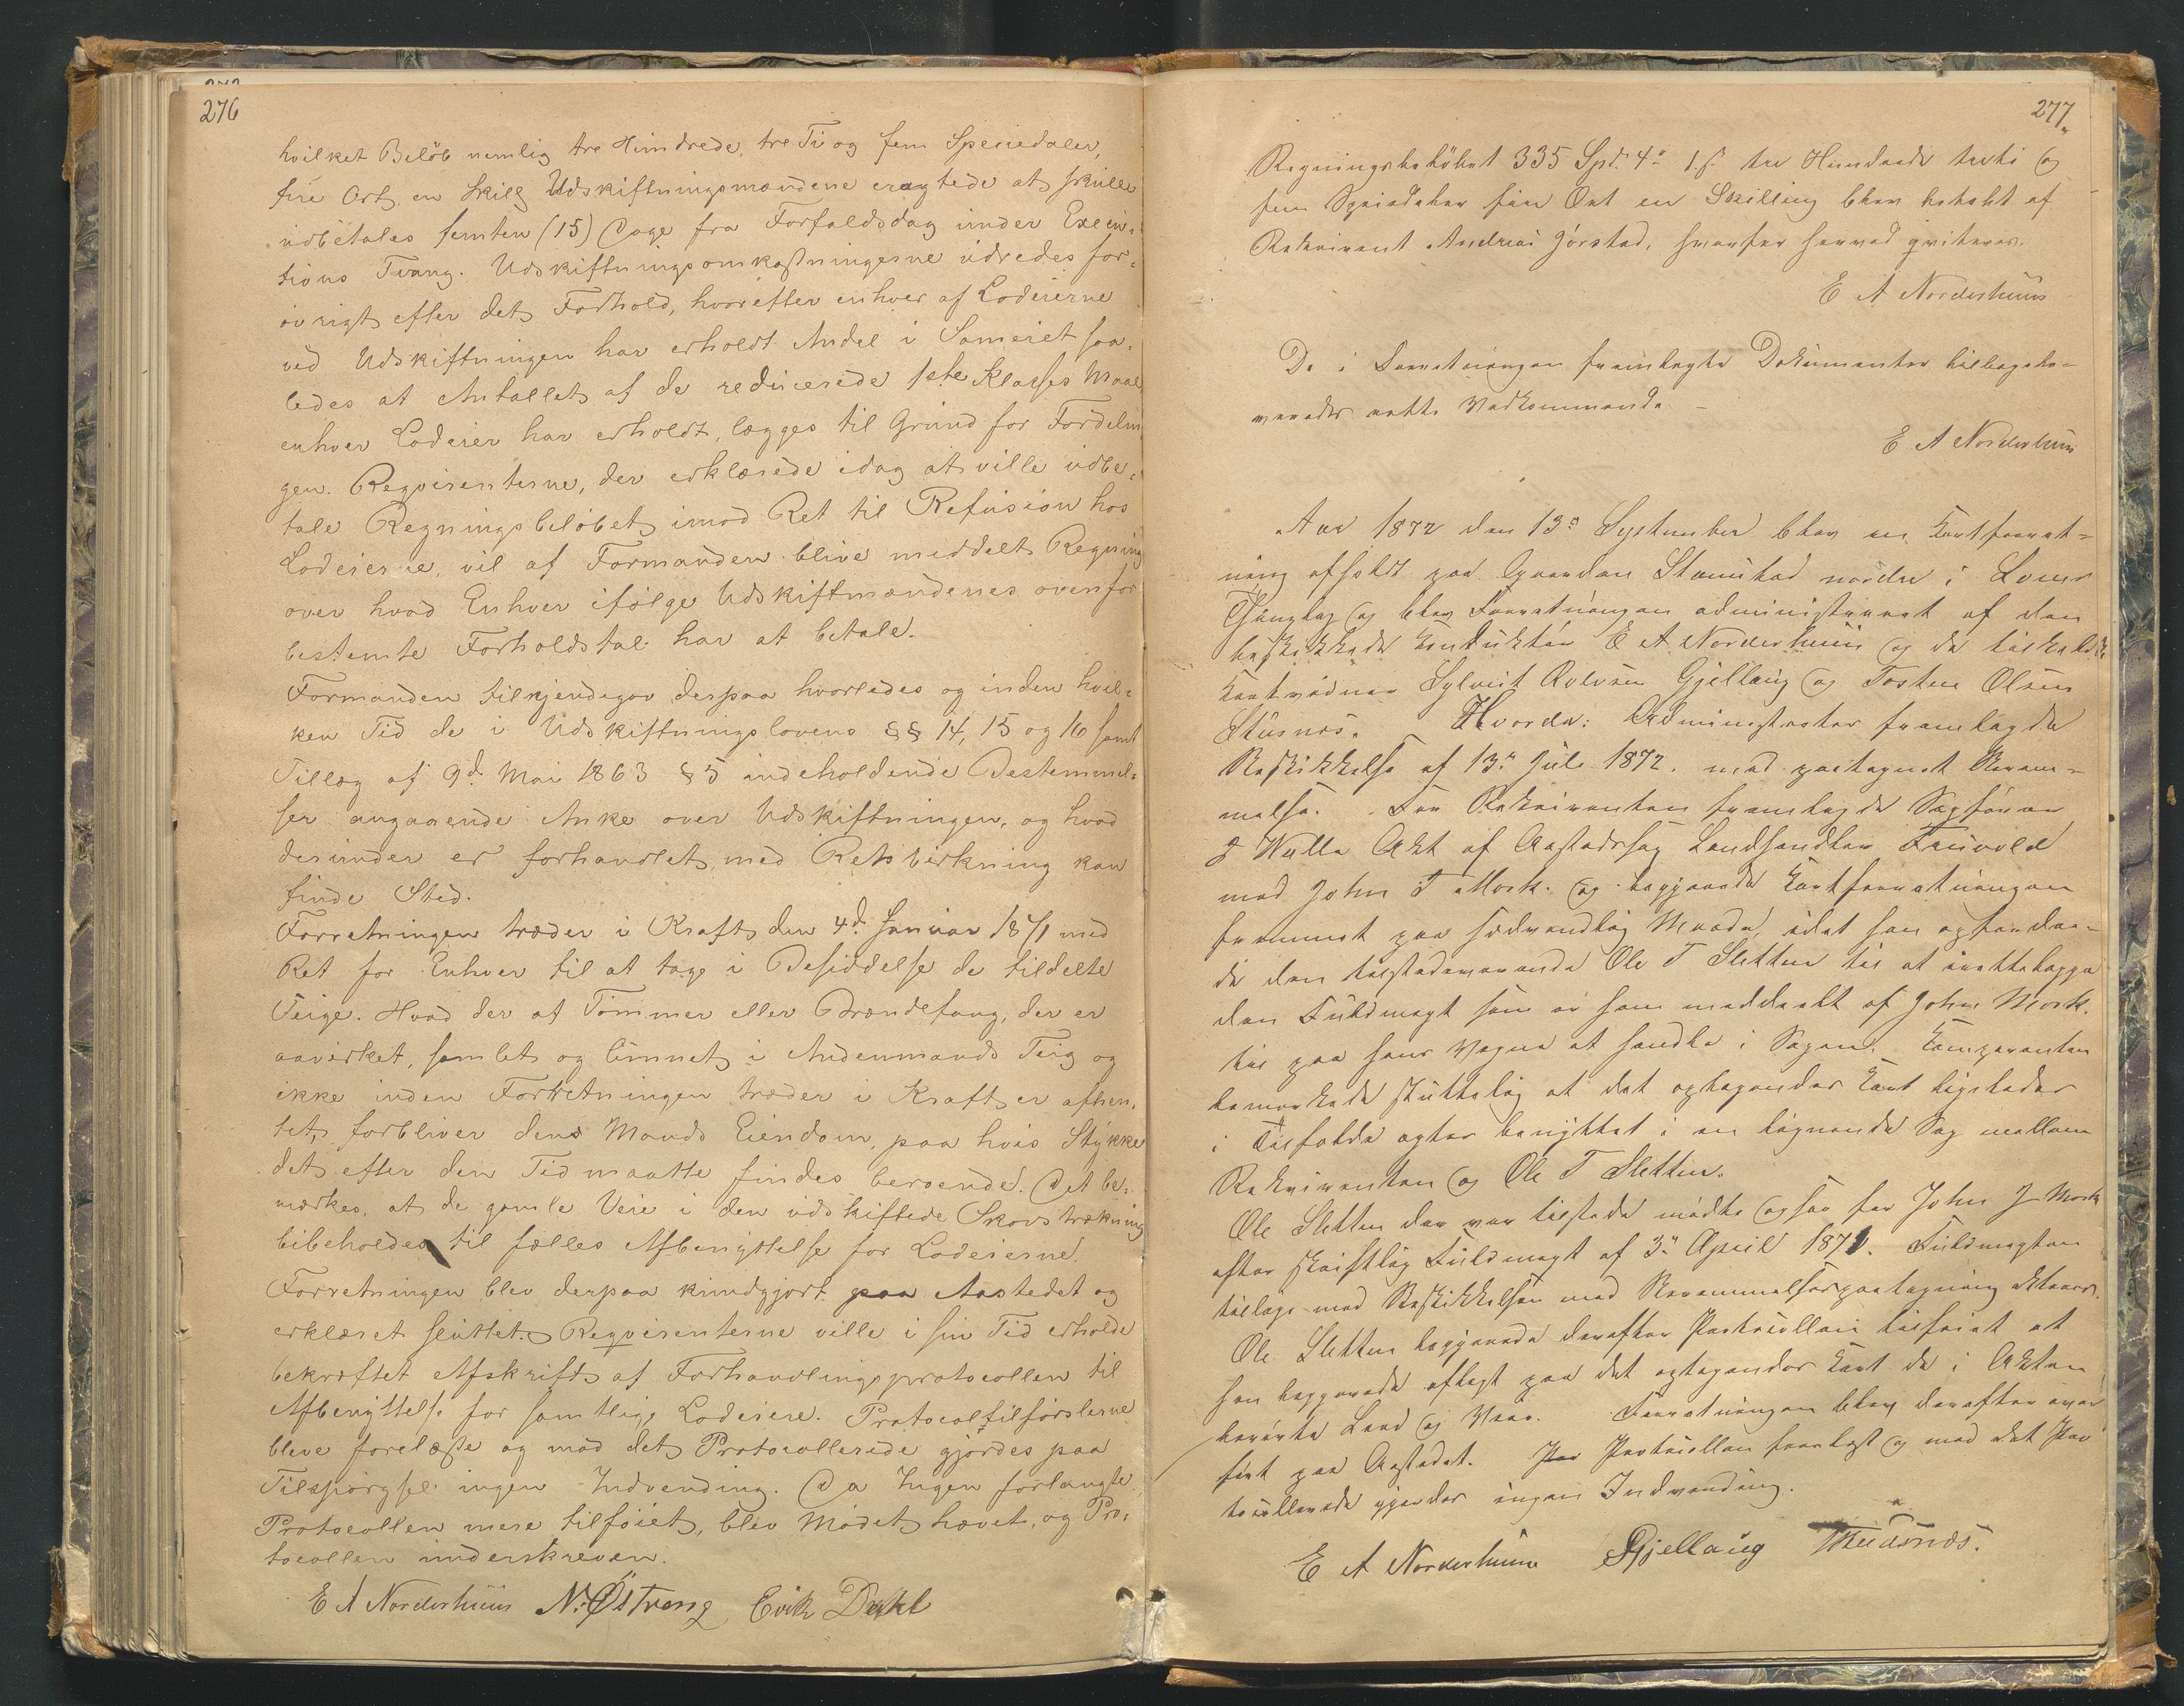 276
hvilket Beløb nemlig tre Hundrede, tre Ti og fem Speciedaler,
fire Ort, en Skill Udskiftningsmændene eragtede at skulle
udbetales femten (15) Dage fra Forfaldsdag under Execu-
tions Tvang. Udskiftningsomkostningerne udredes for-
øvrigt efter det Forhold, hvorefter enhver af Lodeierne
ved Udskiftningen har erholdt Andel i Sameiet saa-
ledes at Antallet af de reducerede 1ste Klasses Maal
enhver Lodeier har erholdt, lægges til Grund for Fordelin
gen. Reqvirenterne, der erklærede idag at ville udbe-
tale Regningsbeløbet imod Ret til Refusion hos
Lodeierne, vil af Formanden blive meddelt Regning
over hvad Enhver ifølge Udskiftmændenes ovenfor
bestemte Forholdstal har at betale.
Formanden tilkjendegav derpaa hvorledes og inden hvil-
ken Tid de i Udskiftningslovens §§ 14, 15 og 16 samt
Tillæg af 9d. Mai 1863 § 5 indeholdende Bestemmel-
ser angaaende Anke over Udskiftningen, og hvad
derunder er forhandlet, med Retsvirkning kan
finde Sted.
Forretningen træder i Kraft den 4d. Januar 1871 med
Ret for Enhver til at tage i Besiddelse de tildelte
Teige. Hvad der af Tømmer eller Brændefang, der er
aavirket, samlet og lunnet i Andenmands Teig og
ikke inden Forretningen træder i Kraft er afhen-
tet, forbliver dens Mands Eiendom, paa hvis Stykke
det efter den Tid maatte findes beroende. Det be-
mærkes, at de gamle Veie i den udskiftede Skovstrækning
bibeholdes til fælles Afbenyttelse for Lodeierne.
Forretningen blev derpaa kundgjort paa Aastedet og
erklæret sluttet. Reqvirenterne ville i sin Tid erholde
bekræftet Afskrift af Forhandlingsprotocollen til
Afbenyttelse for samtlige Lodeiere. Protocoltilførslerne
bleve forelæste og mod det Protocollerede gjordes paa
Tilspørgsel ingen Indvending. Da Ingen forlangte
Protocollen mere tilføiet, blev Mødet hævet, og Pro-
tocollen underskreven.
E A Norderhuus N. Østvang Erik Dahl
277
Regningsbeløbet 335 Spd. 4 1 s. tre Hundrede treti og
fem Speciedaler fire Ort en Skilling blev betalt af
Rekvirent Andreas Jørstad, hvorfor herved qviteres.
E A Norderhuus
De i Forretningen fremlagte Dokumenter tilbagele-
veredes rette Vedkommende –
E A Norderhuus
Aar 1872 den 13de September blev en Kartforret-
ning afholdt paa Gaarden Stamstad nordre i Loms
Thinglag og blev Forretningen administreret af den
beskikkede Konduktør E A Norderhuus og de tilkaldte
Kartvidner Sylvest Gjellaug og Tosten Olsen
Hvorda: Administrator fremlagde
Beskikkelse af 13de Juli 1872. med paategnet Beram-
melse. For Rekvirenten fremlagde Sagfører
Akt af Aastedssag Landhandler
mod John T Mork. og begjærede Kartforretningen
fremmet paa sædvanlig Maade, idet han opfordre-
de den tilstedeværende Ole T Sletten til at irettelægge
den Fuldmagt som er ham meddeelt af John Mork.
til paa hans Vegne at handle i Sagen. Komparenten
bemærkede sluttelig at det optagendes Kart ligeledes
i Tilfælde agtes benyttet i en lignende Sag mellem
Rekvirenten og Ole T Sletten.
Ole Sletten der var tilstede mødte ogsaa for John J Mork
efter skriftlig Fuldmagt af 3de April 1871. Fuldmagten
tillige med Beskikkelsen med Berammelsespaategning
Ole Sletten begjærede derefter Protocollen tilføiet at
han begjærede aflagt paa det optagendes Kart de i Akten
berørte Land og Veie. Forretningen blev derefter over
ført paa Aastedet. Protocollen forelæst og mod det Pro
tocollerede gjordes ingen Indvending.
E A Norderhuus Gjellaug